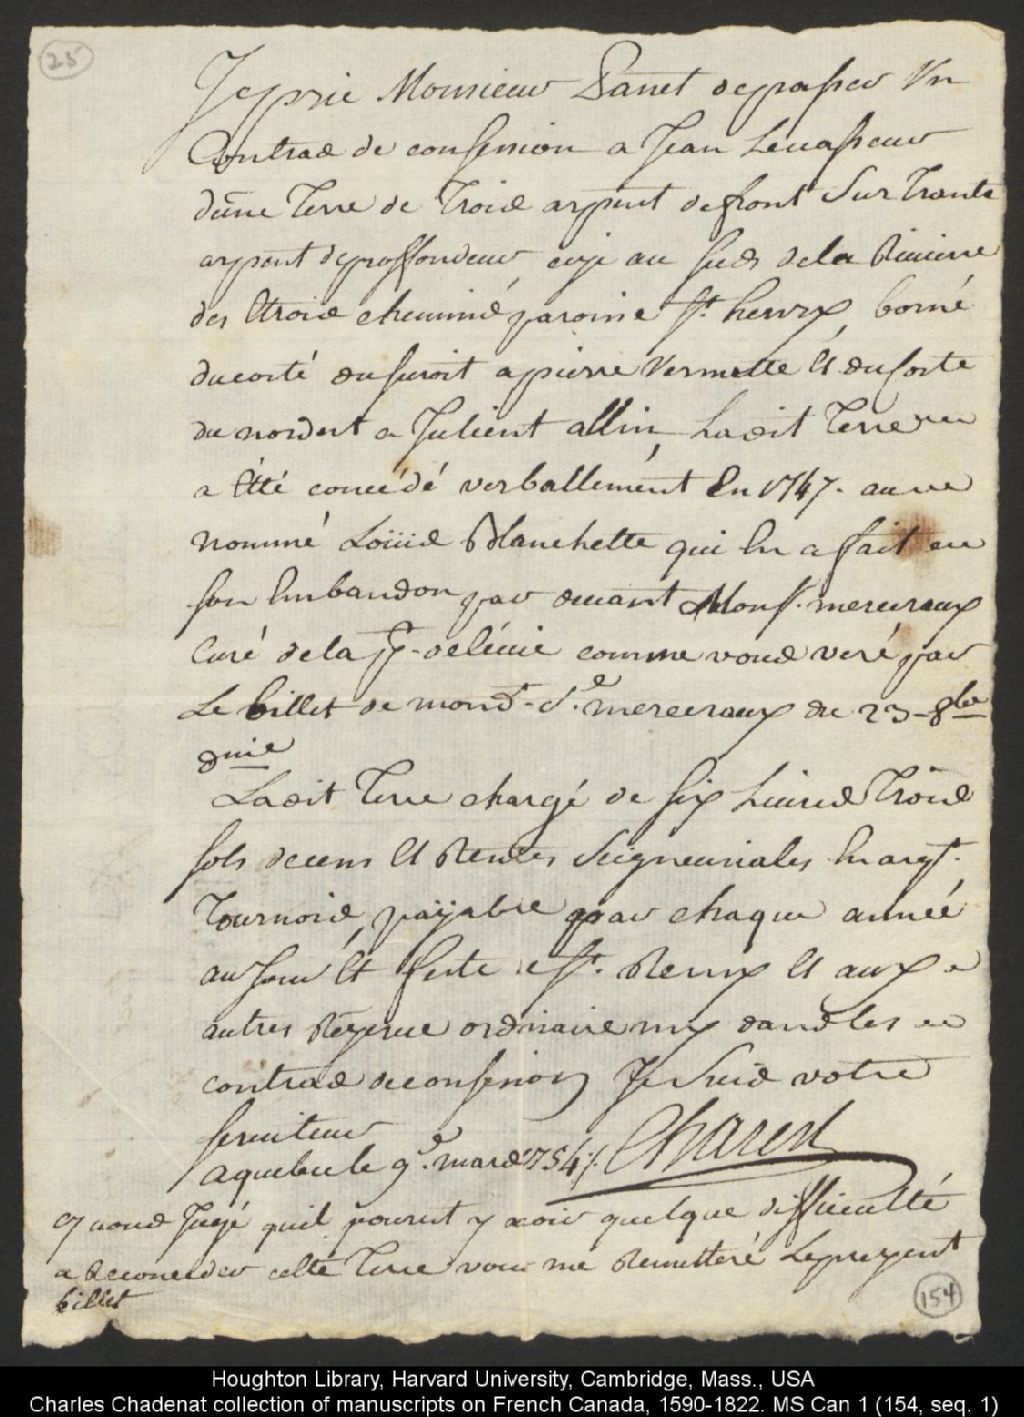 25
Je prie Monsieur Panet de passer Vn
Contrad de consession a Jean Levasseur
d'une Terre de Trois arpent de front Sur Trante
arpent de proffondeur, size au sud de la Riuierre
des Etrois cheminé paroisse St. henry, borné
du costé du suroit a pierre Vermette Et du costé
du nordest a Julient allin, La dit Terre
a Etté concédé verballement En 1747. au
nommé Loüis Blanchette qui En a fait
son Enbandon par devant Monsr. mercereaux
Curé de la pte. de lévie comme vous veré par
Le billet de mond. Sr. mercereaux du 23 8bre
dnie
La dit Terre chargé de six Liures Trois
sols de cens Et Rentes Seigneuriales En argt.
Tournois, païjable par chaque année
au jour Et feste St. Remy Et aux
autres Rézerue ordinaire mis dans les
contrad de consession Je Suis votre
seruiteur
a quebec le 9e. mars 1754 /. Charest
Sy vous Jugé quil pourest y avoir quelque difficulté
a Reconceder cette Terre vous me Remetteré Le prezent
billet
154
Houghton Library, Harvard University, Cambridge, Mass., USA
Charles Chadenat collection of manuscripts on French Canada, 1590-1822. MS Can 1 (154, seq. 1)